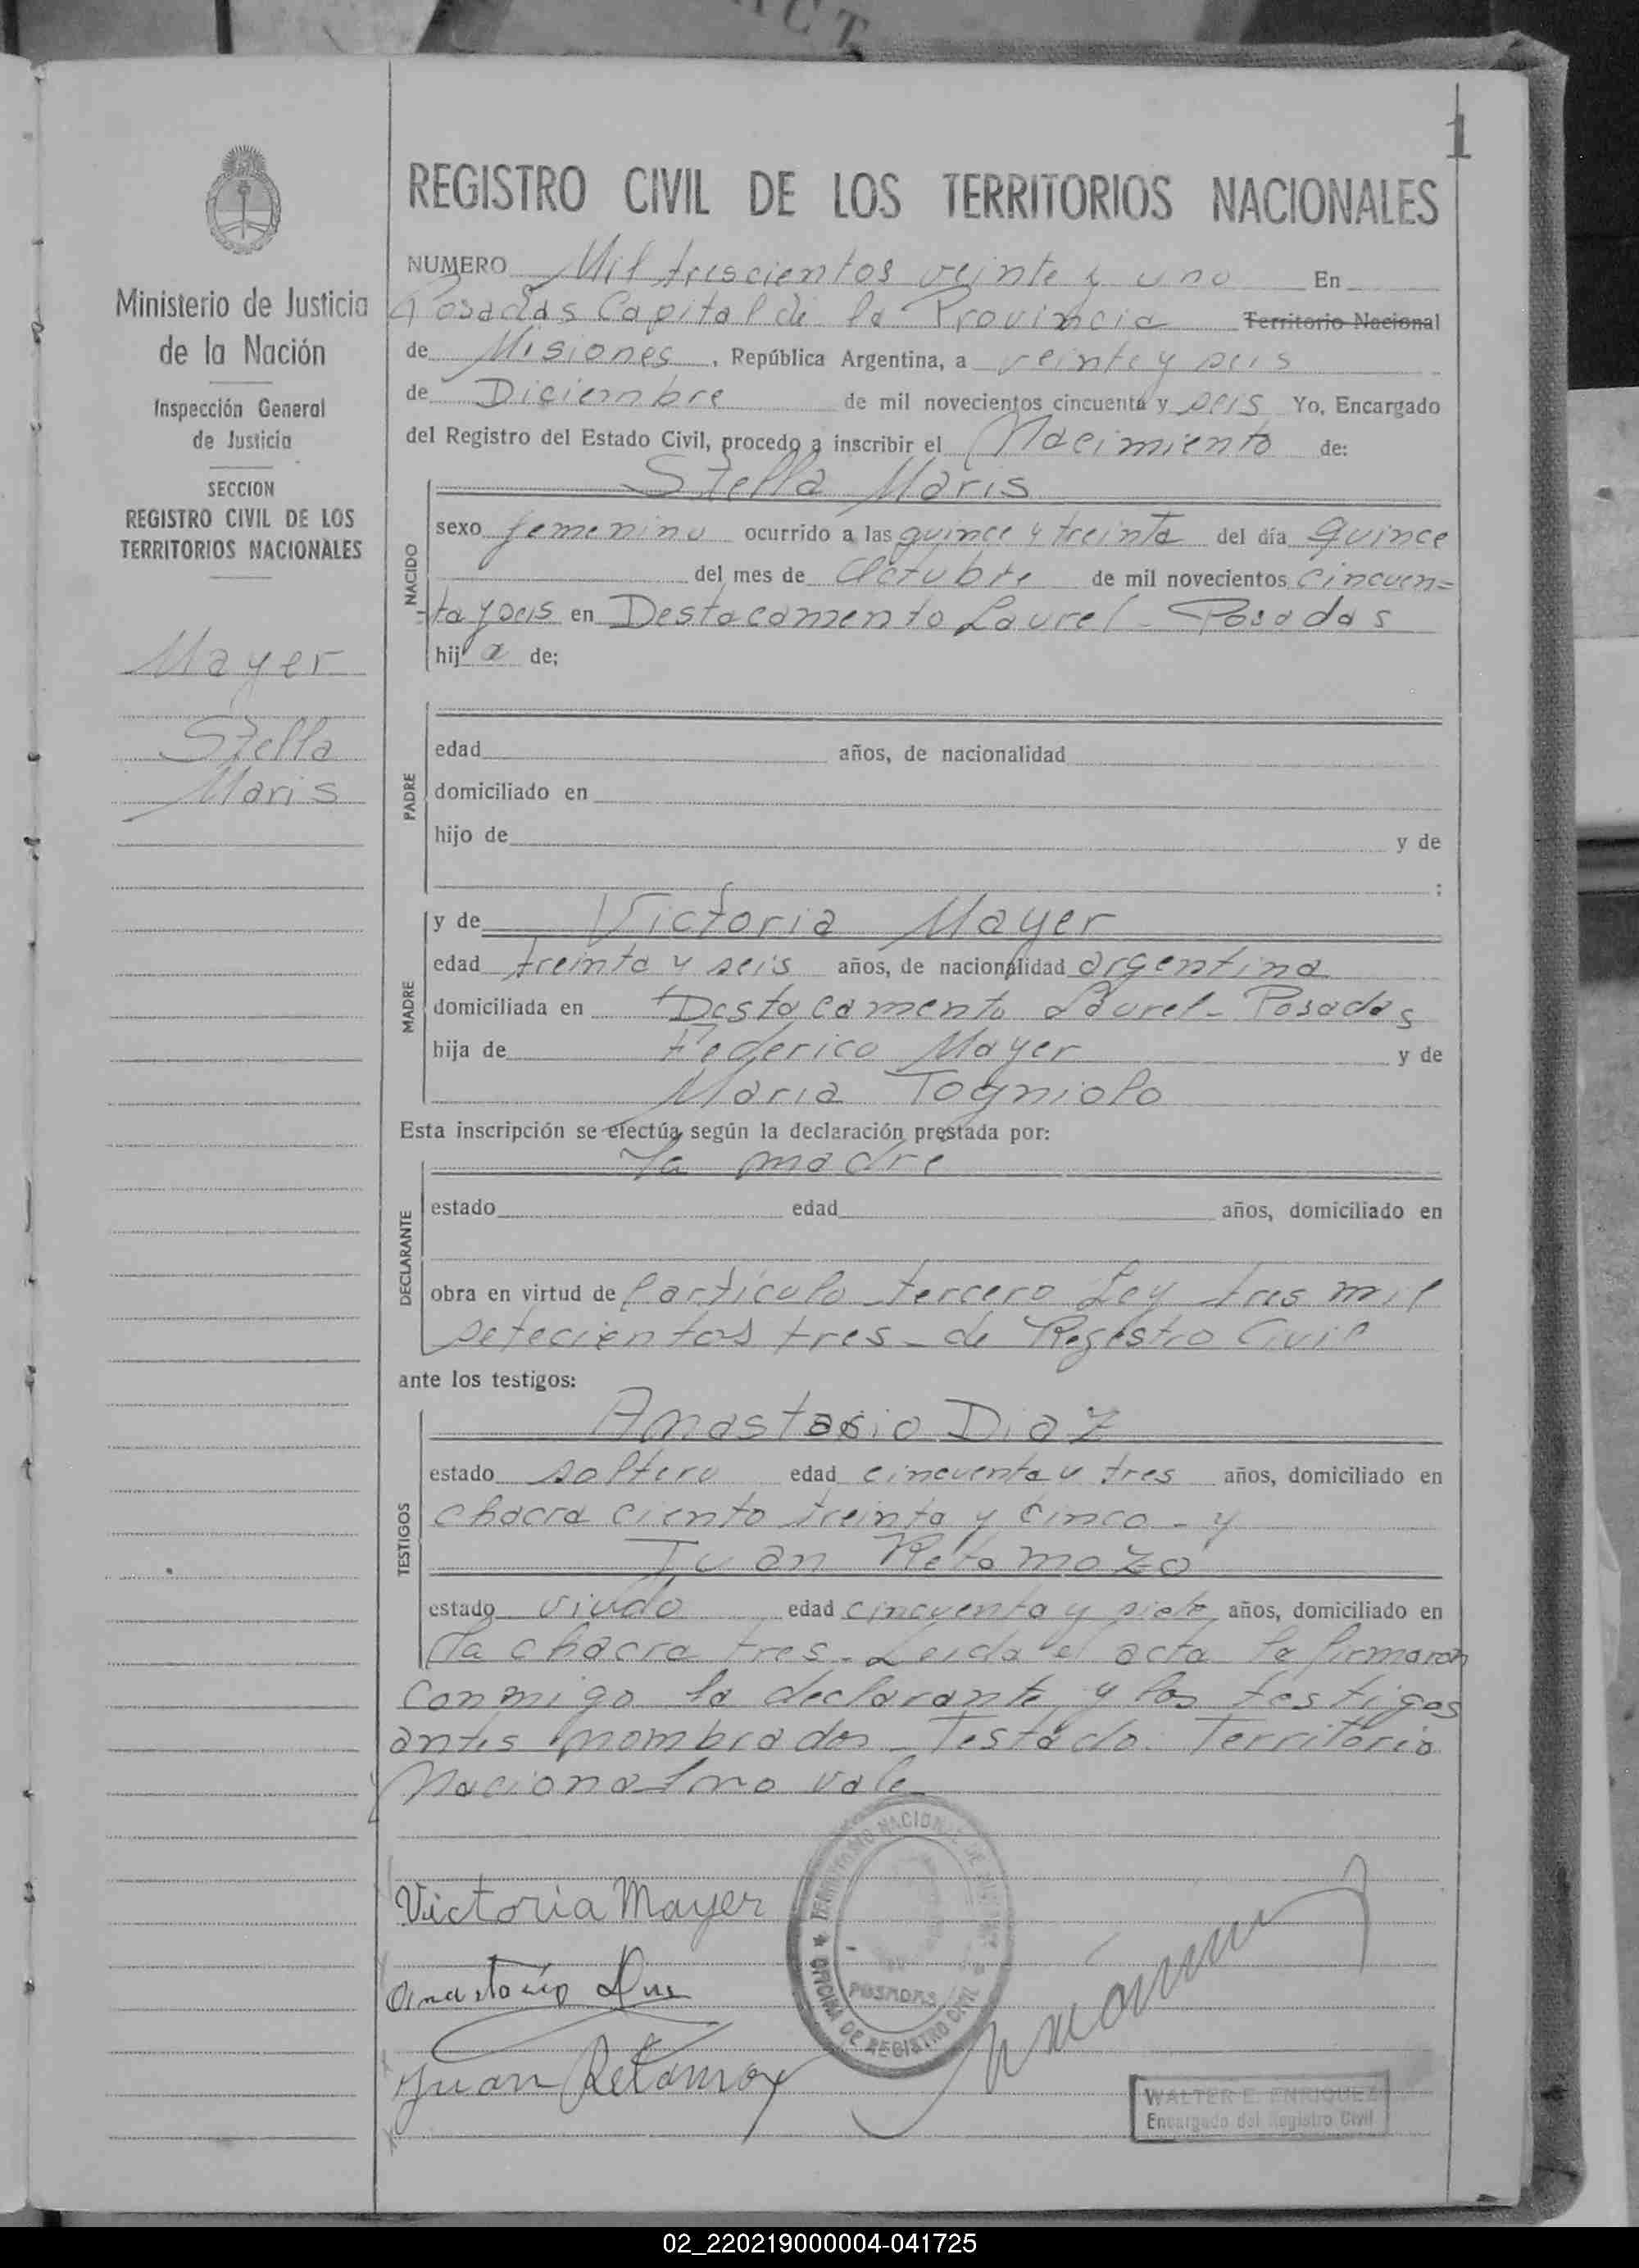 1
REGISTRO CIVIL DE LOS TERRITORIOS NACIONALES
Ministerio de Justicia
de la Nación
Inspección General
de Justicia
SECCION
REGISTRO CIVIL DE LOS
TERRITORIOS NACIONALES
Mayer
Stella
Maris
NUMERO Mil trescientos veinte y uno En
Posadas Capital de la Provincia Territorio Nacional
de Misiones, República Argentina, a veinte y seis
de Diciembre de mil novecientos cincuenta y seis Yo, Encargado
del Registro del Estado Civil, procedo a inscribir el Nacimiento de:
NACIDO
Stella Maris
sexo femenino ocurrido a las quince y treinta del día quince
del mes de Octubre de mil novecientos cincuen=
-ta y seis en Destacamento Laurel - Posadas
hij a de;
PADRE
edad años, de nacionalidad
domiciliado en
hijo de y de
:
MADRE
y de Victoria Mayer
edad treinta y seis años, de nacionalidad argentina
domiciliada en Destacamento Laurel - Posadas
hija de Federico Mayer y de
Maria Togniolo
Esta inscripción se efectúa según la declaración prestada por:
DECLARANTE
la madre
estado edad años, domiciliado en
obra en virtud de l artículo tercero Ley tres mil
setecientos tres - de Registro Civil
ante los testigos:
TESTIGOS
Anastasio Diaz
estado soltero edad cincuenta y tres años, domiciliado en
chacra ciento treinta y cinco - y
Juan Retamozo
estado viudo edad cincuenta y siete años, domiciliado en
la chacra tres. Leida el acta la firmaron
conmigo la declarante y los testigos
antes nombrados - Testado: Territorio
Nacional no vale
Victoria Mayer
Anastacio Diaz
Juan Retamozo
TERRITORIO NACIONAL DE MISIONES
OFICINA DE REGISTRO CIVIL
POSADAS
WALTER E. ENRIQUEZ
Encargado del Registro Civil
02_220219000004-041725